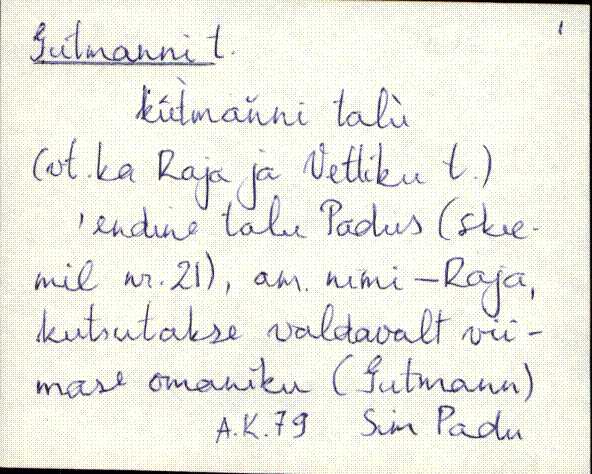 1
Gutmanni t.
kùtman̆ni talù
(vt. ka Raja ja Vetliku t.)
'endine talu Padus (skee-
mil nr. 21), am. nimi – Raja,
kutsutakse valdavalt vii-
mase omaniku (Gutmann)
A.K. 79 Sim Padu